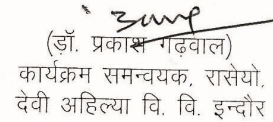 (डॉ. प्रकाश गढ़वाल)
कार्यक्रम समन्वयक, रासेयो,
देवी अहिल्या वि. वि. इन्दौर